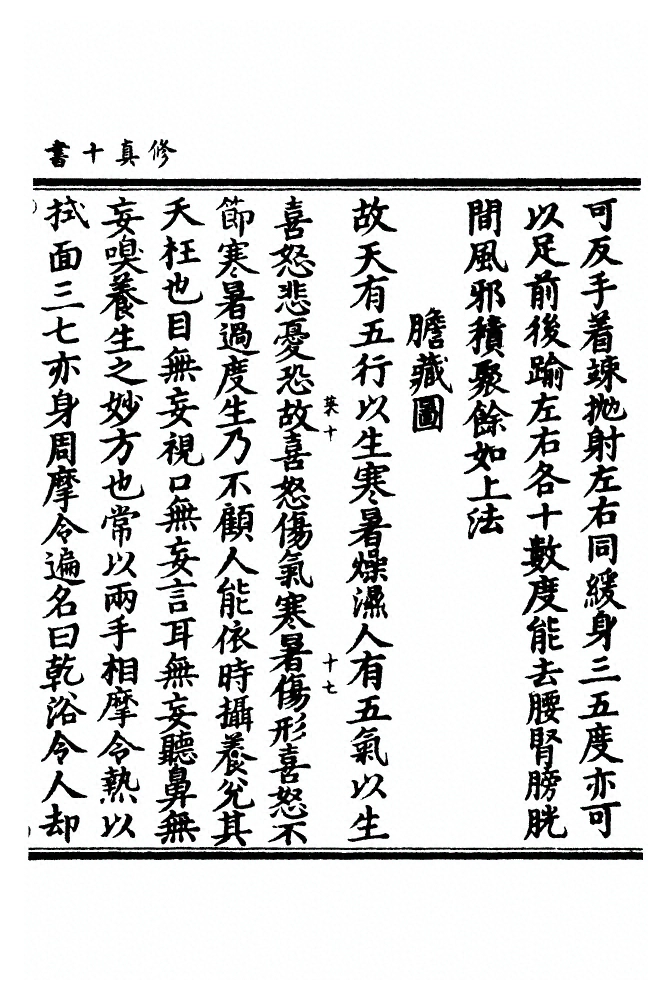 修真十書
可反手着竦拋射左右同緩身三五度亦可
以足前後踰左右各十數度能去腰腎膀胱
間風邪積聚餘如上法
膽藏圖
故天有五行以生寒暑燥濕人有五氣以生
菜十
十七
喜怒悲憂恐故喜怒傷氣寒暑傷形喜怒不
節寒暑過度生乃不顧人能依時攝養免其
夭枉也目無妄視口無妄言耳無妄聽鼻無
妄嗅養生之妙方也常以兩手相摩令熱以
拭面三七亦身周摩令遍名曰乾浴令人却